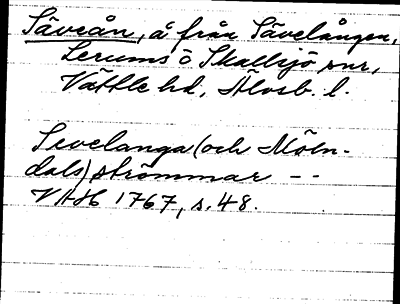 Säveån, å från Sävelången,
Lerums o Skallsjö snr,
Vättle hd, Älvsb. l.
Sevelanga (och Möln-
dals) strömmar - -
VAH 1767, s. 48.